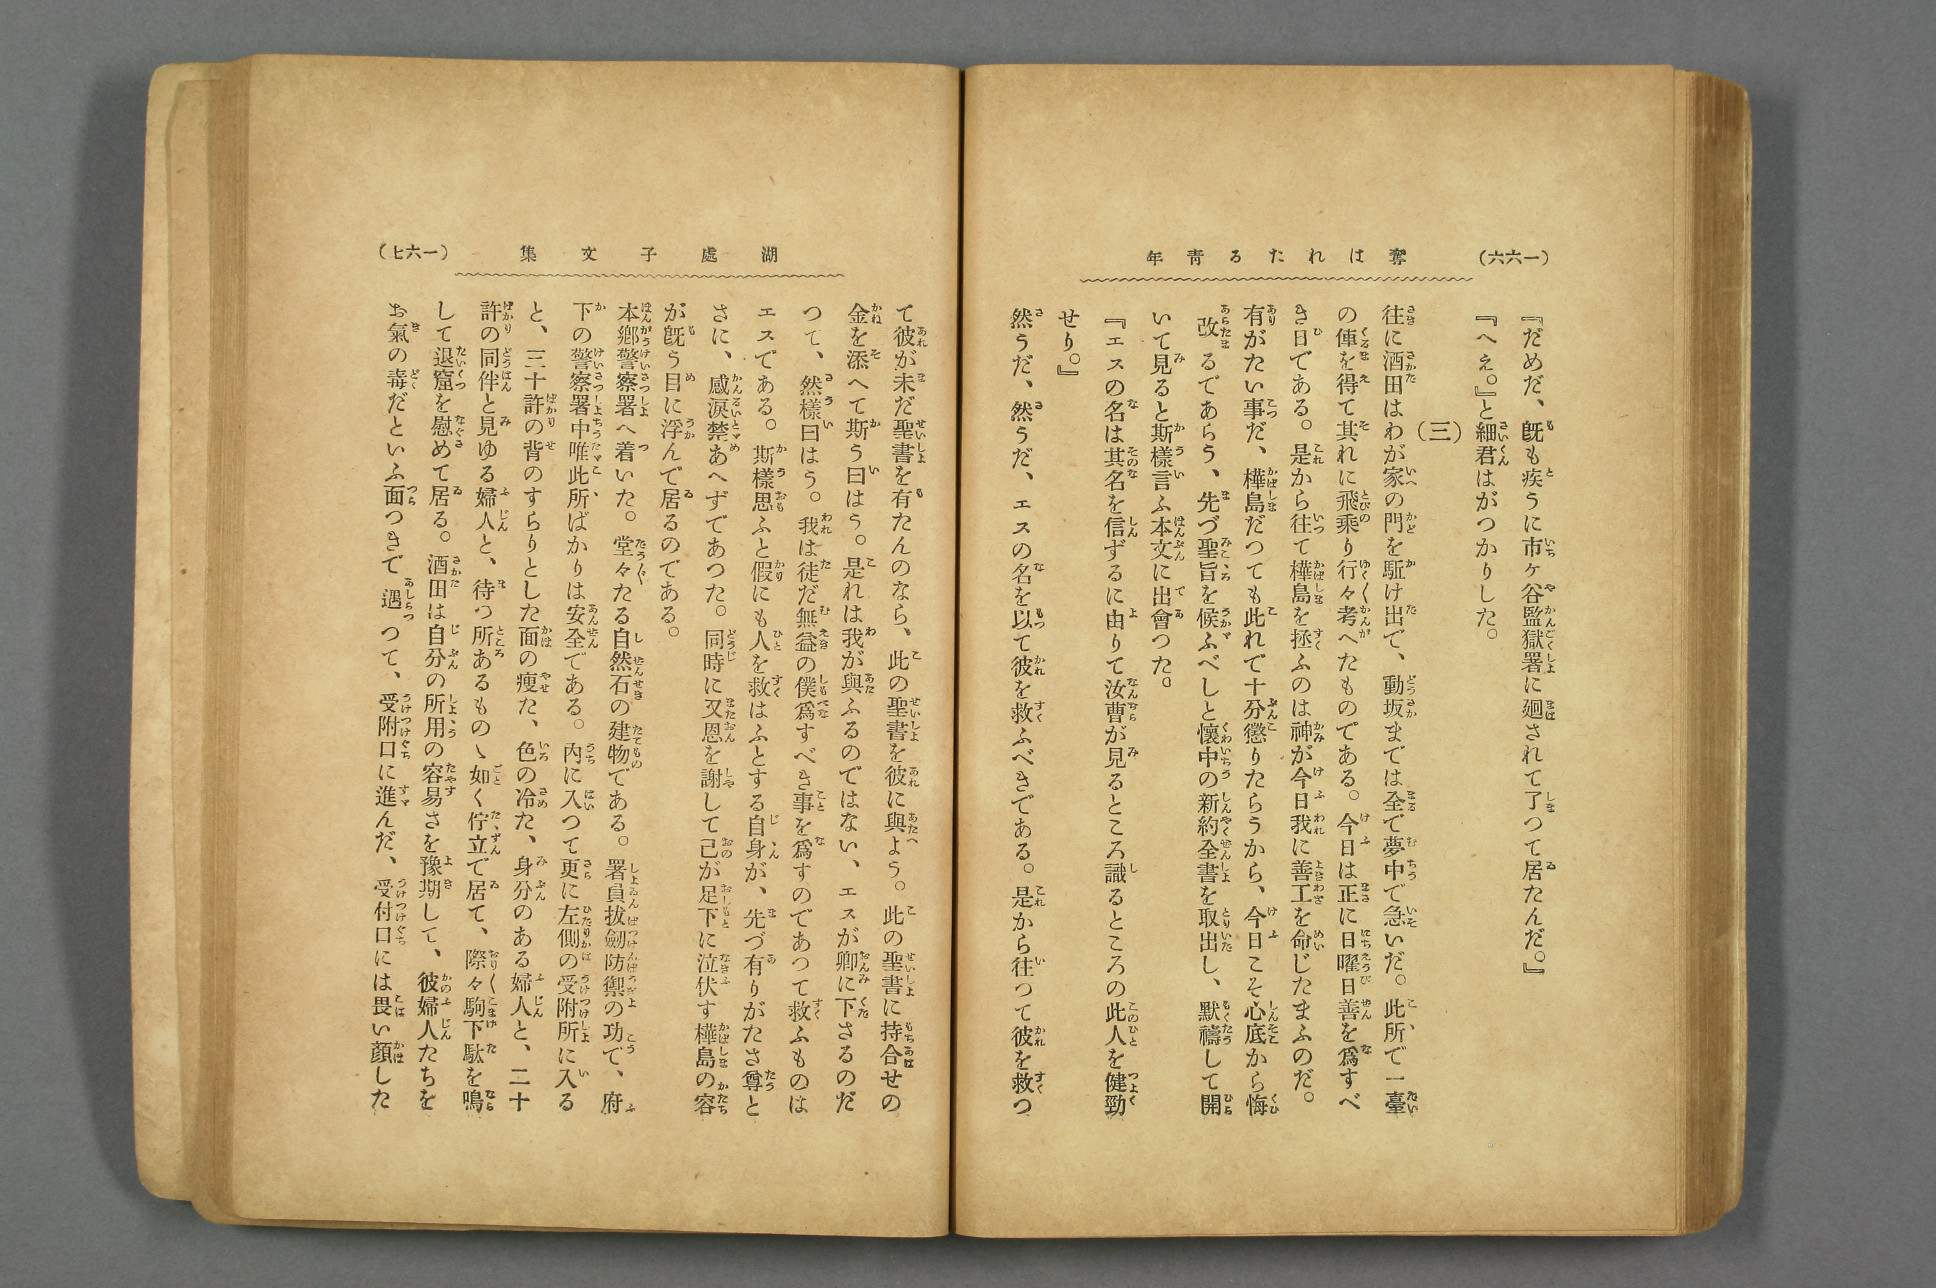 (一六六)
奪はれたる青年
『だめだ、既も疾うに市ヶ谷監獄署に廻されて了つて居たんだ。』
『へえ。』と細君はがつかりした。
(三)
往に酒田はわが家の門を駈け出で、動坂までは全で夢中で急いだ。此所で一臺
の俥を得て其れに飛乘り行々考へたものである。今日は正に日曜日善を爲すべ
き日である。是から往て樺島を拯ふのは神が今日我に善工を命じたまふのだ。
有がたい事だ、樺島だつても此れで十分懲りたらうから、今日こそ心底から悔
改るであらう、先づ聖旨を候ふべしと懷中の新約全書を取出し、默禱して開
いて見ると斯樣言ふ本文に出會つた。
『エスの名は其名を信ずるに由りて汝曹が見るところ識るところの此人を健勁
せり。』
然うだ、然うだ、エスの名を以て彼を救ふべきである。是から往つて彼を救つ
(一六七)
湖處子文集
て彼が未だ聖書を有たんのなら、此の聖書を彼に與よう。此の聖書に持合せの
金を添へて斯う曰はう。是れは我が與ふるのではない、エスが卿に下さるのだ
つて、然樣曰はう。我は徒だ無益の僕爲すべき事を爲すのであつて救ふものは
エスである。斯樣思ふと假にも人を救はふとする自身が、先づ有りがたさ尊と
さに、感涙禁あへずであつた。同時に又恩を謝して己が足下に泣伏す樺島の容
が既う目に浮んで居るのである。
本鄉警察署へ着いた。堂々たる自然石の建物である。署員拔劒防禦の功で、府
下の警察署中唯此所ばかりは安全である。内に入つて更に左側の受附所に入る
と、三十許の背のすらりとした面の瘦た、色の冷た、身分のある婦人と、二十
許の同伴と見ゆる婦人と、待つ所あるものゝ如く佇立で居て、際々駒下駄を鳴
して退窟を慰めて居る。酒田は自分の所用の容易さを豫期して、彼婦人たちを
お氣の毒だといふ面つきで遇つて、受附口に進んだ、受付口には畏い顏した